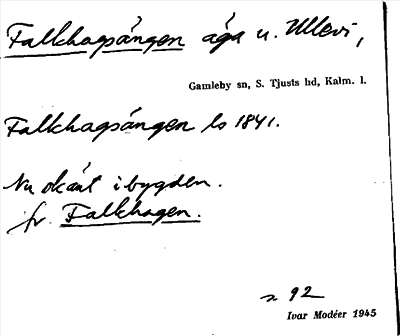 Falkhagsängen äga u. Ullevi,
Gamleby sn, S. Tjusts hd, Kalm. l.
Falkhagsängen ls 1841.
Nu okänt i bygden.
Jfr Falkhagen.
s 92
Ivar Modéer 1945